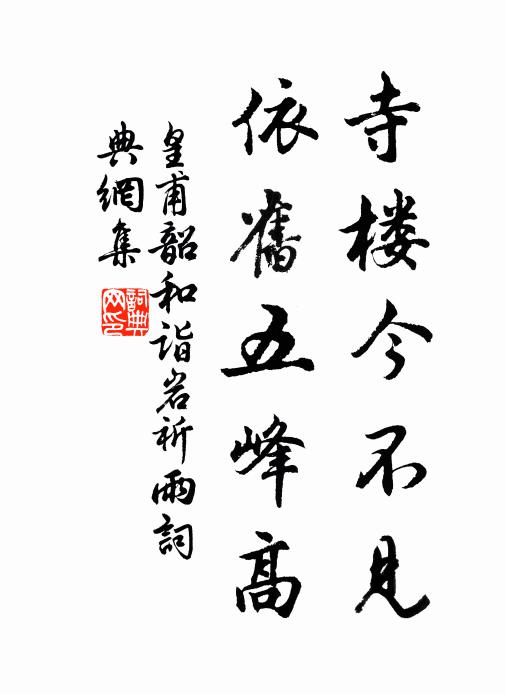 寺楼今不見
依舊五峰高
皇甫韶和詣岩祈雨詞
典網集
詞典網印